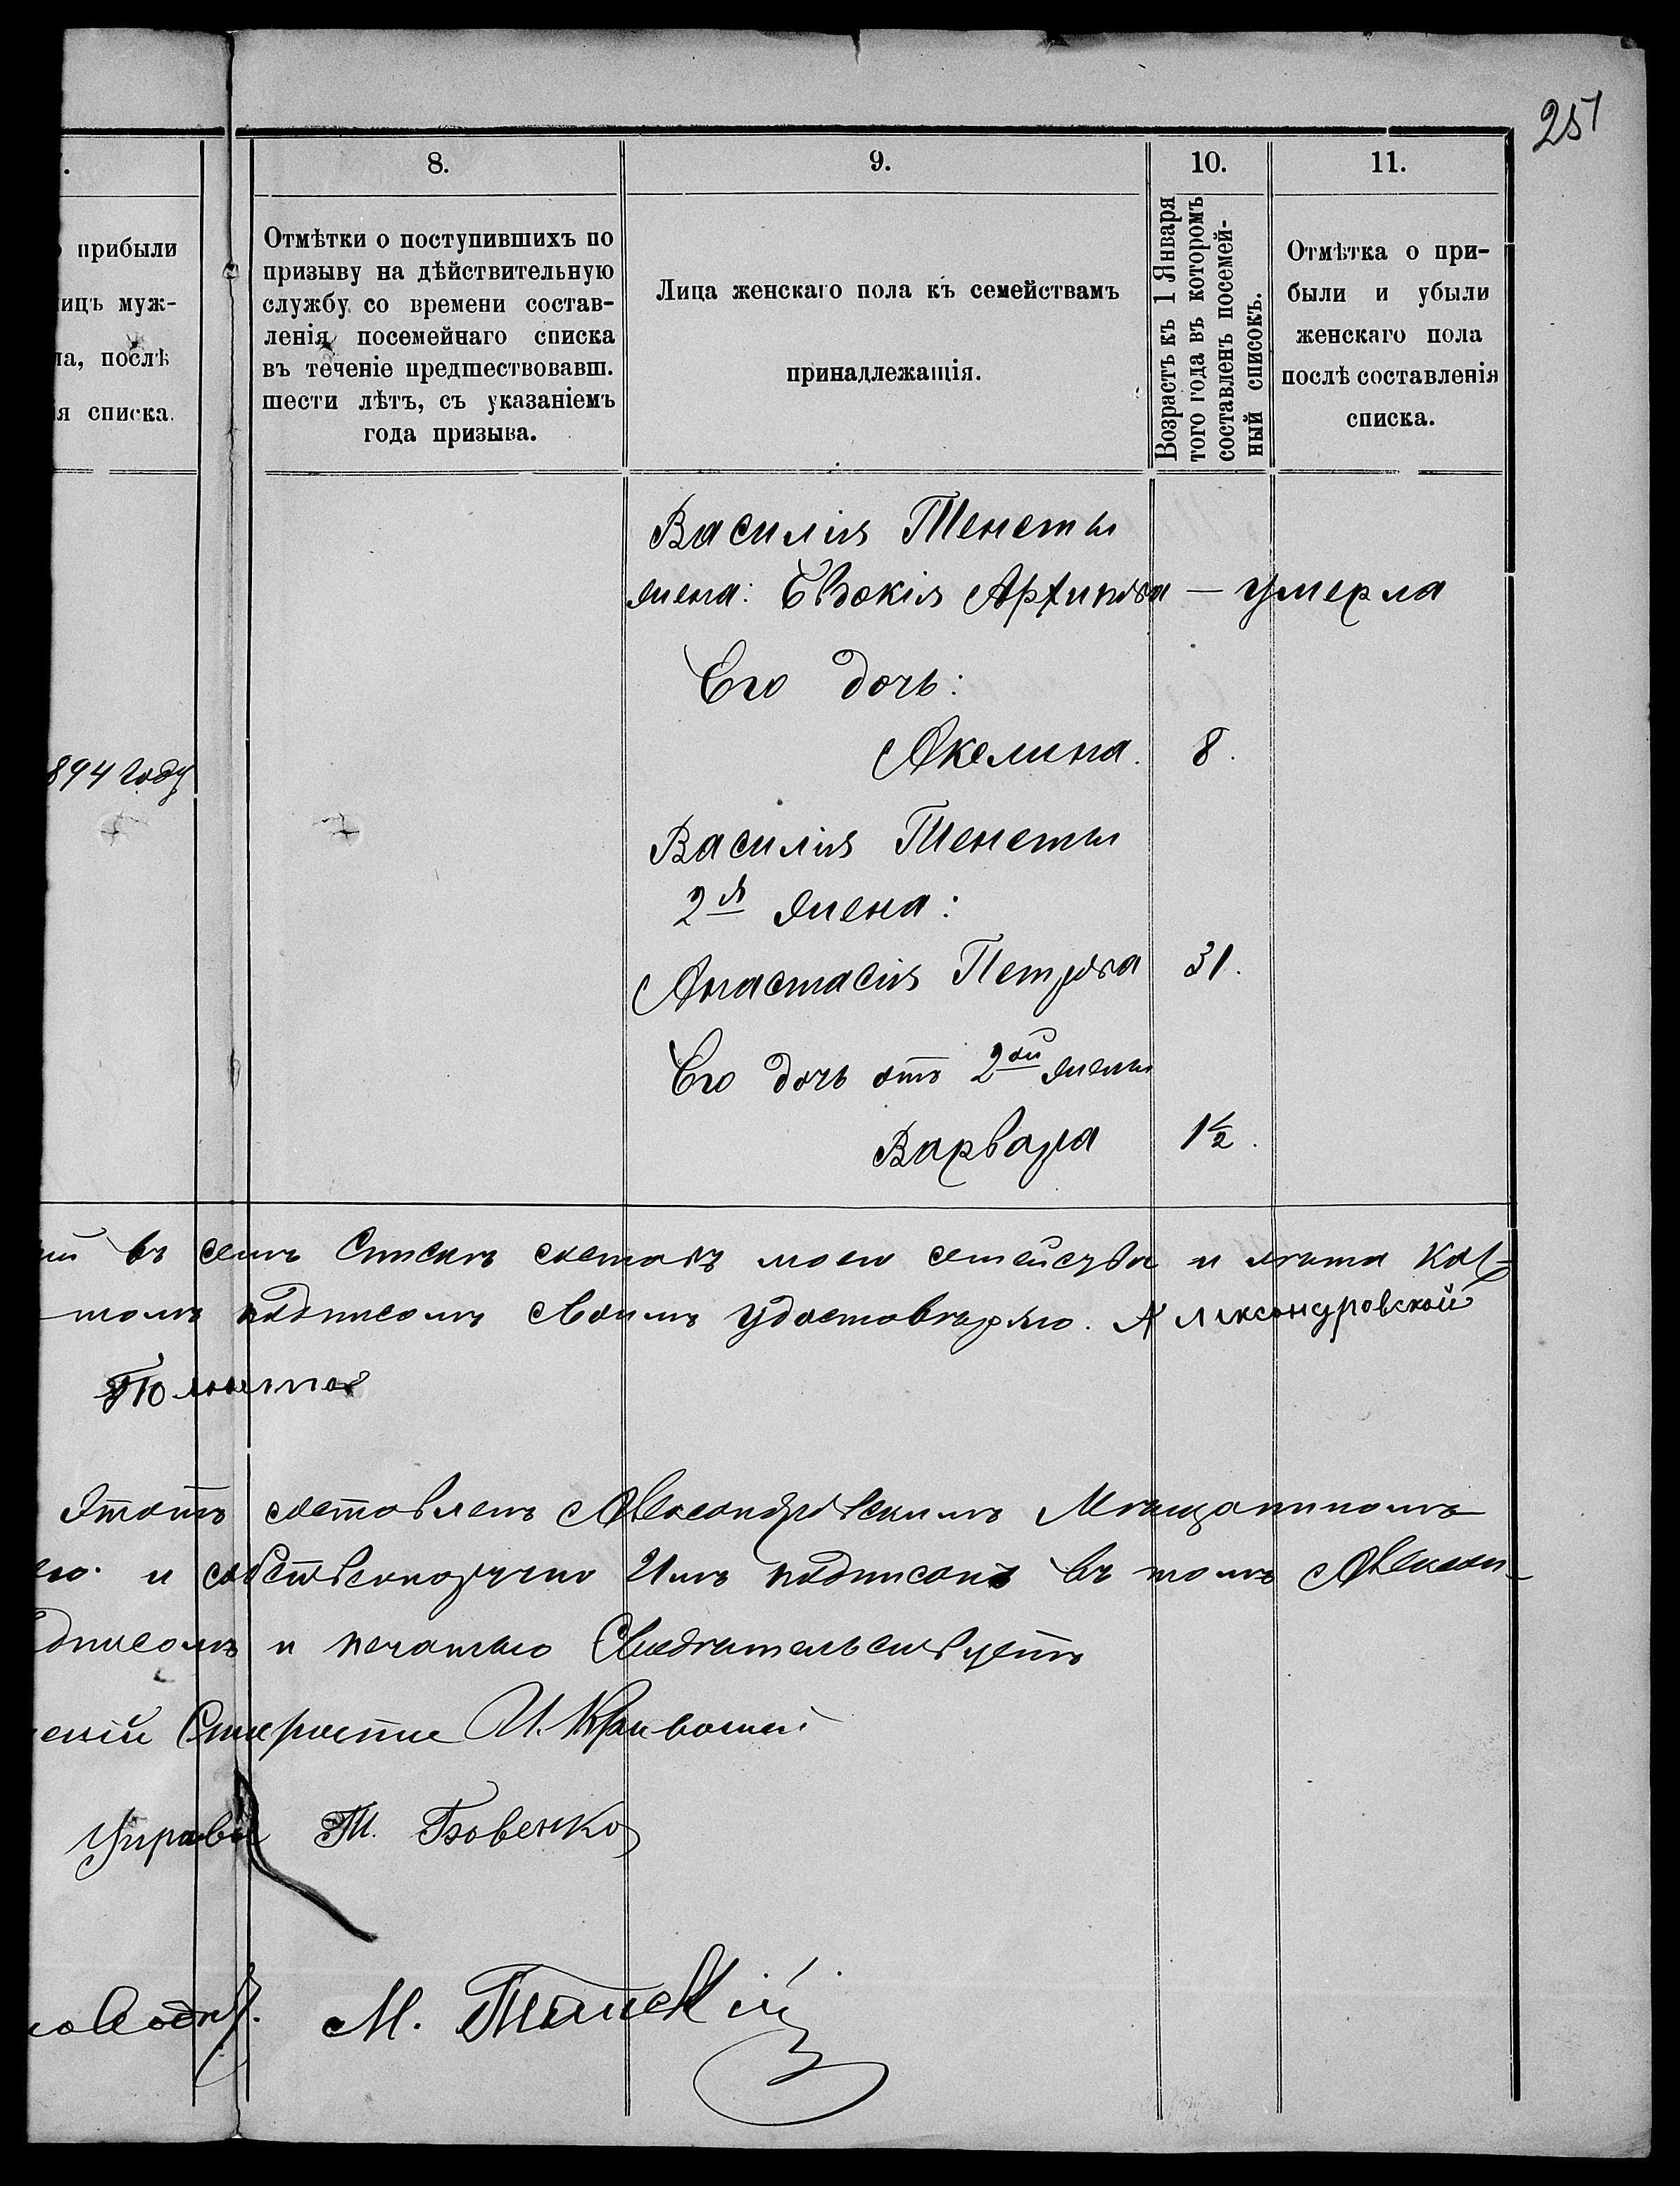 251
8.
9.
10.
11.
прибыли
ицъ муж-
ла, послѣ
ія списка.
Отмѣтки о поступившихъ по
призыву на дѣйствительную
службу со времени состав-
ленія посемейнаго списка
въ теченіе предшествовавш.
шести лѣтъ, съ указаніемъ
года призыва.
Лица женскаго пола къ семействамъ
принадлежащія.
Возрастъ къ 1 Января
того года въ которомъ
составленъ посемей-
ный списокъ.
Отмѣтка о при-
были и убыли
женскаго пола
послѣ составленія
списка.
Василія Тенеты
жена: Евдокія Архипова — умерла
Его дочь:
Акелина. 8.
894 году
Василія Тенеты
2я жена:
Анастасія Петрова 31.
Его дочь отъ 2ой жены
Варвара 1½.
въ семъ Спискѣ составъ моего семейства и лѣта каж-
подписомъ своимъ удостовѣряю. Александровской
Этотъ составленъ Александровскимъ Мѣщаниномъ
и собственоручно Имъ подписанъ въ томъ Алексан-
дписомъ и печатью Свидѣтельствуетъ
Староста И. Кривошей
Управы Т. Бовенко
М.